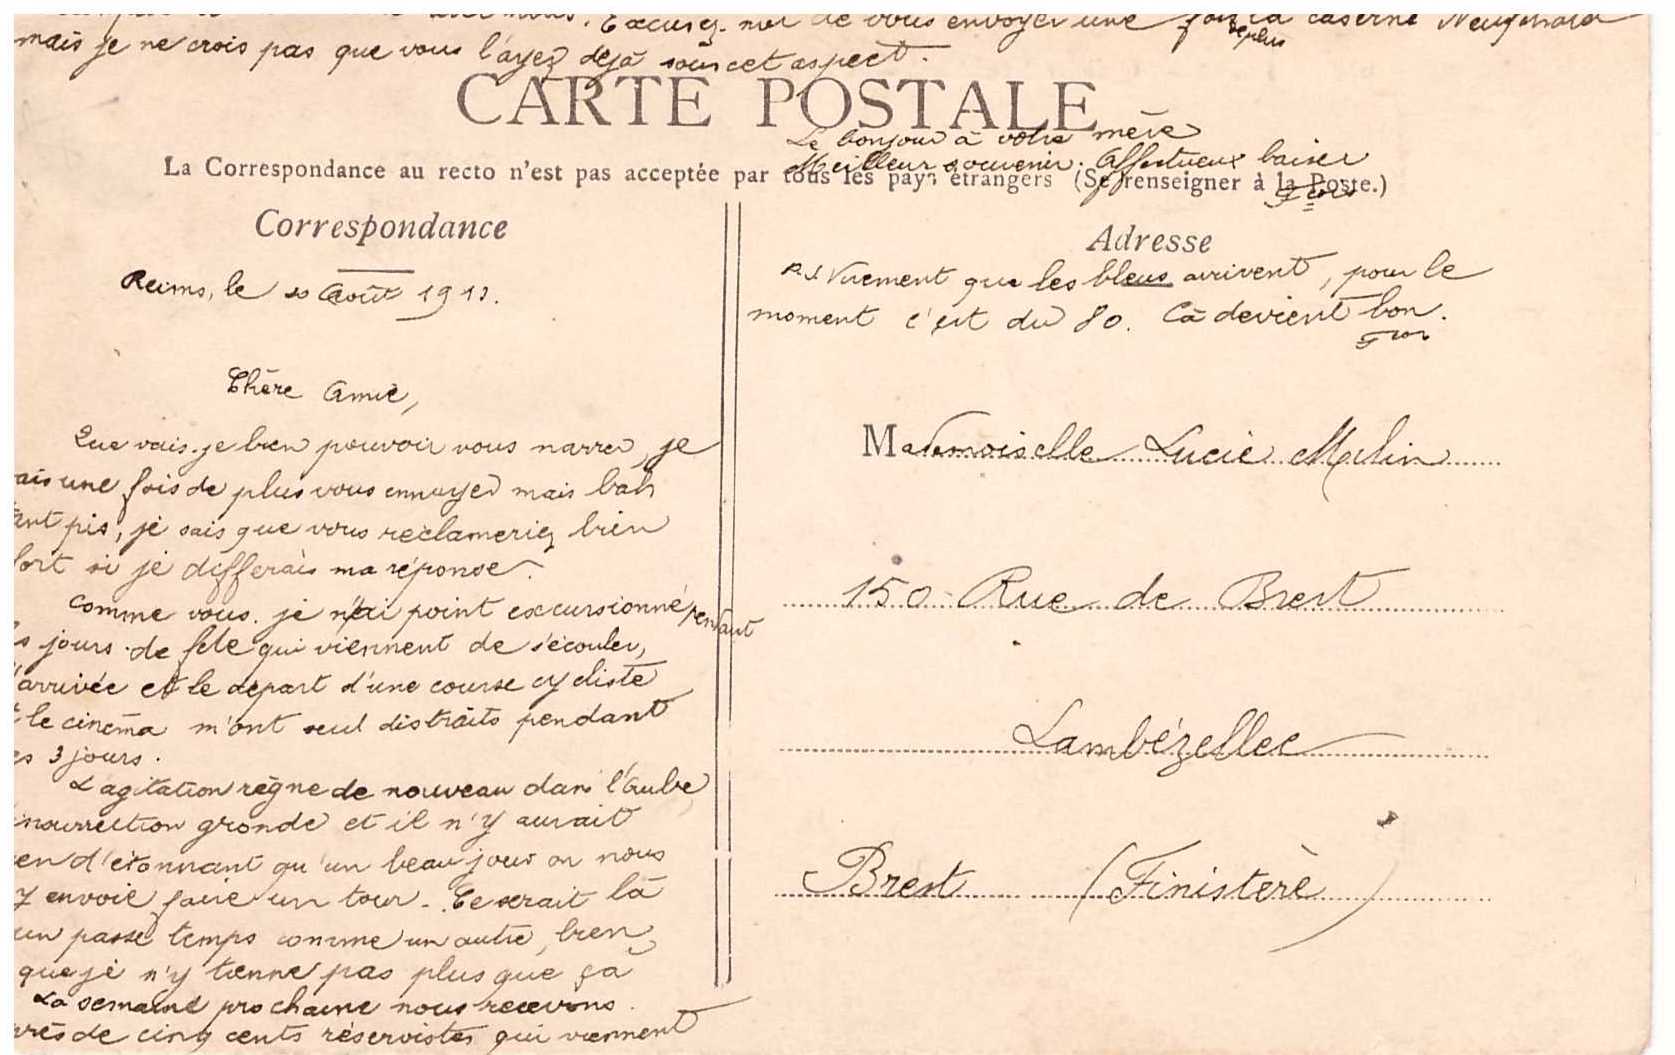 Excusez-moi de vous envoyer une fois de plus la caserne Neufchatel
mais je ne crois pas que vous l'ayez déjà sous cet aspect.
CARTE POSTALE
Le bonjour à votre mère
Meilleur souvenir. Affectueux baiser
La Correspondance au recto n'est pas acceptée par tous les pays étrangers (Se renseigner à la Poste.)
Correspondance
Reims, le Août 1911.
Chère Amie,
Que vais-je bien pouvoir vous narrer, je
vais une fois de plus vous ennuyer mais bah
tant pis, je sais que vous réclameriez bien
fort si je différais ma réponse.
Comme vous je n'ai point excursionné pendant
les jours de fête qui viennent de s'écouler,
l'arrivée et le départ d'une course cycliste
et le cinéma m'ont seul distraits pendant
ces 3 jours.
L'agitation règne de nouveau dans l'Aube
insurrection gronde et il n'y aurait
rien d'étonnant qu'un beau jour on nous
y envoie faire un tour. Ce serait là
un passe temps comme un autre, bien
que je n'y tienne pas plus que ça
La semaine prochaine nous recevons
près de cinq cents réservistes qui viennent
Adresse
P.S. Vivement que les bleus arrivent, pour le
moment c'est du 80. Cà devient bon.
Mademoiselle Lucie Melin
150 Rue de Brest
Lambézellec
Brest (Finistère)